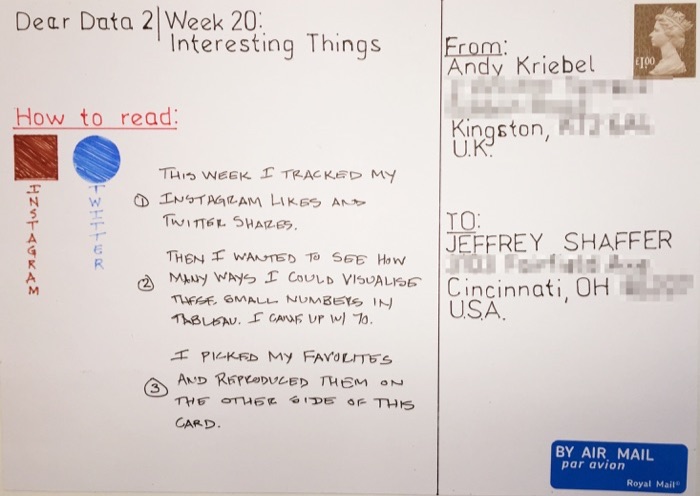 Dear Data 2 | Week 20:
Interesting Things
How to read:
INSTAGRAM
TWITTER
① THIS WEEK I TRACKED MY
INSTAGRAM LIKES AND
TWITTER SHARES.
② THEN I WANTED TO SEE HOW
MANY WAYS I COULD VISUALISE
THESE SMALL NUMBERS IN
TABLEAU. I CAME UP W/ 70.
③ I PICKED MY FAVORITES
AND REPRODUCED THEM ON
THE OTHER SIDE OF THIS
CARD.
From:
Andy Kriebel
Kingston,
U.K.
£1.00
TO:
JEFFREY SHAFFER
Cincinnati, OH
U.S.A.
BY AIR MAIL
par avion
Royal Mail®